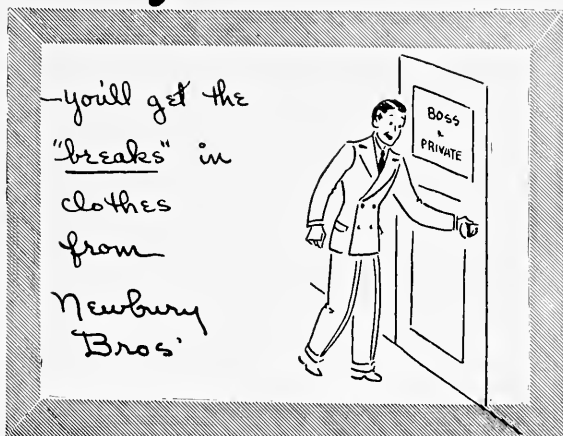 —you'll get the
"breaks" in
clothes
from
Newbury
Bros'
BOSS
&
PRIVATE